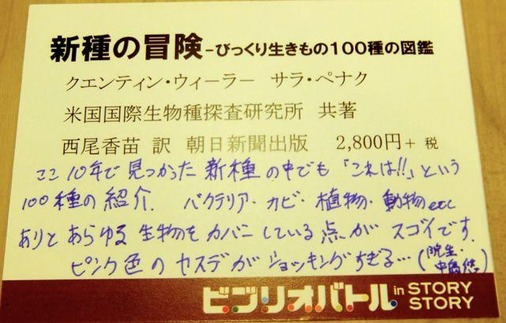 新種の冒険-びっくり生きもの100種の図鑑
クエンティン・ウィーラー サラ・ペナク
米国国際生物種探査研究所 共著
西尾香苗 訳 朝日新聞出版 2,800円+税
ここ10年で見つかった新種の中でも「これは!!」という
100種の紹介. バクテリア・カビ・植物・動物etc
ありとあらゆる生物をカバーしている点がスゴイです.
ピンク色のヤスデがショッキングすぎる…(院生
ビブリオバトル in STORY STORY